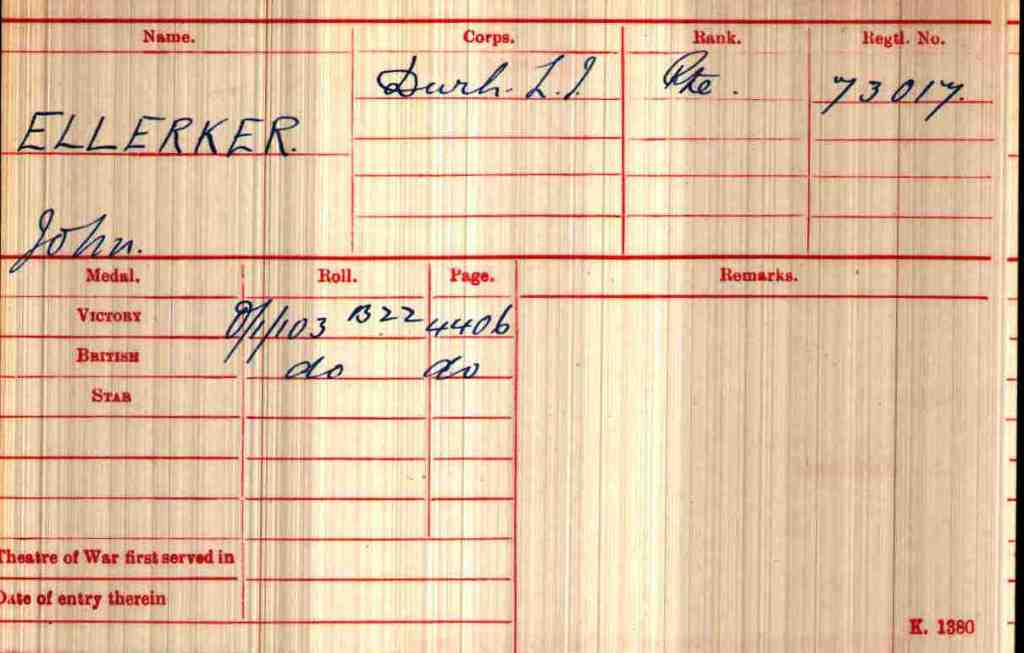 Name. Corps. Rank. Regtl. No.
Durh. L.I. Pte. 73017.
ELLERKER.
John.
Medal. Roll. Page. Remarks.
VICTORY O/1/103 B22 4406
BRITISH do do
STAR
Theatre of War first served in
Date of entry therein
K. 1380